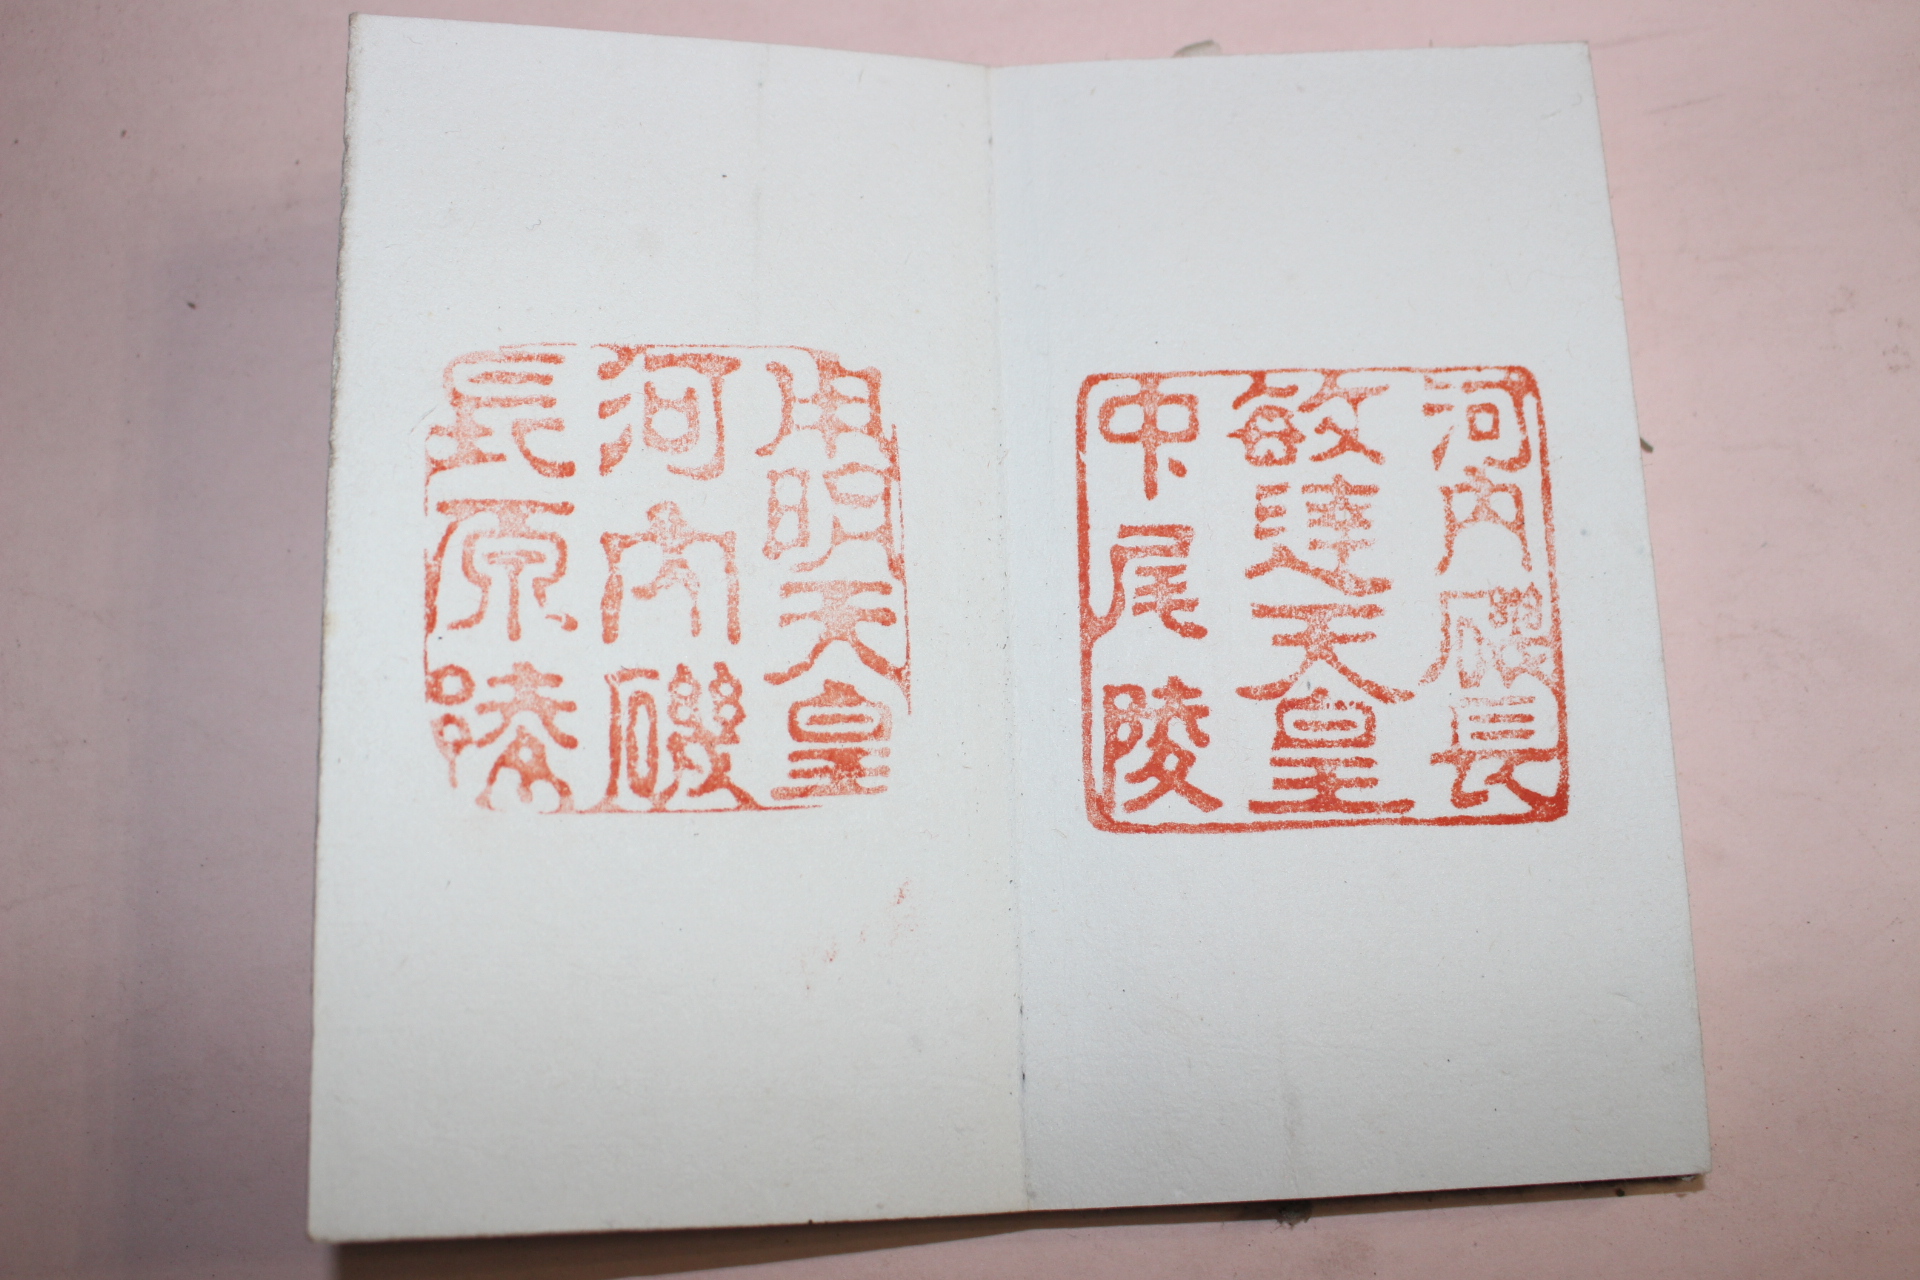 河内磯長
敏達天皇
中尾陵
用明天皇
河内磯
長原陵